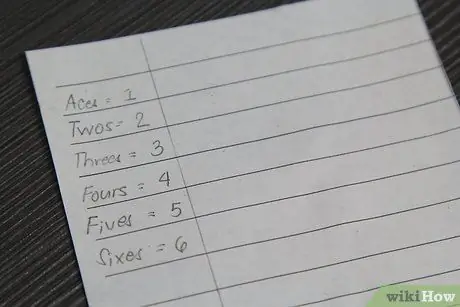 Aces = 1
Twos = 2
Threes = 3
Fours = 4
Fives = 5
Sixes = 6
wikiHow